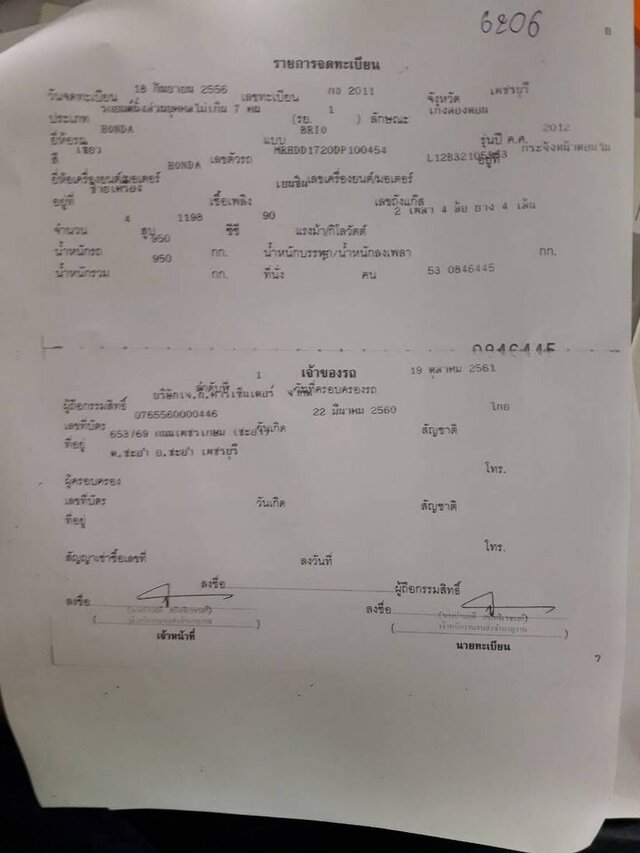 6206
8
รายการจดทะเบียน
วันจดทะเบียน 18 กันยายน 2556 เลขทะเบียน กง 2011 จังหวัด เพชรบุรี
ประเภท รถยนต์นั่งส่วนบุคคลไม่เกิน 7 คน (รย. 1 ) ลักษณะ เก๋งสองตอน
ยี่ห้อรถ HONDA แบบ BRIO รุ่นปี ค.ศ. 2012
สี เขียว เลขตัวรถ MRHDD1720DP100454 อยู่ที่
ยี่ห้อเครื่องยนต์/มอเตอร์ HONDA เลขเครื่องยนต์/มอเตอร์
อยู่ที่ เชื้อเพลิง เบนซิน เลขถังแก๊ส
จำนวน 4 สูบ 1198 ซีซี 90 แรงม้า/กิโลวัตต์ 2 เพลา 4 ล้อ ยาง 4 เส้น
น้ำหนักรถ 950 กก. น้ำหนักบรรทุก/น้ำหนักลงเพลา กก.
น้ำหนักรวม 950 กก. ที่นั่ง คน 53 0846445
0846445
เจ้าของรถ
ลำดับที่ 1 วันที่ครอบครองรถ 19 ตุลาคม 2561
ผู้ถือกรรมสิทธิ์
เลขที่บัตร 0765560000446 วันเกิด 22 มีนาคม 2560 สัญชาติ ไทย
ที่อยู่ 653/69 ถนนเพชรเกษม
ต.ชะอำ อ.ชะอำ เพชรบุรี
โทร.
ผู้ครอบครอง
เลขที่บัตร วันเกิด สัญชาติ
ที่อยู่
โทร.
สัญญาเช่าซื้อเลขที่ ลงวันที่
ลงชื่อ ผู้ถือกรรมสิทธิ์
ลงชื่อ ลงชื่อ
เจ้าหน้าที่ นายทะเบียน
7